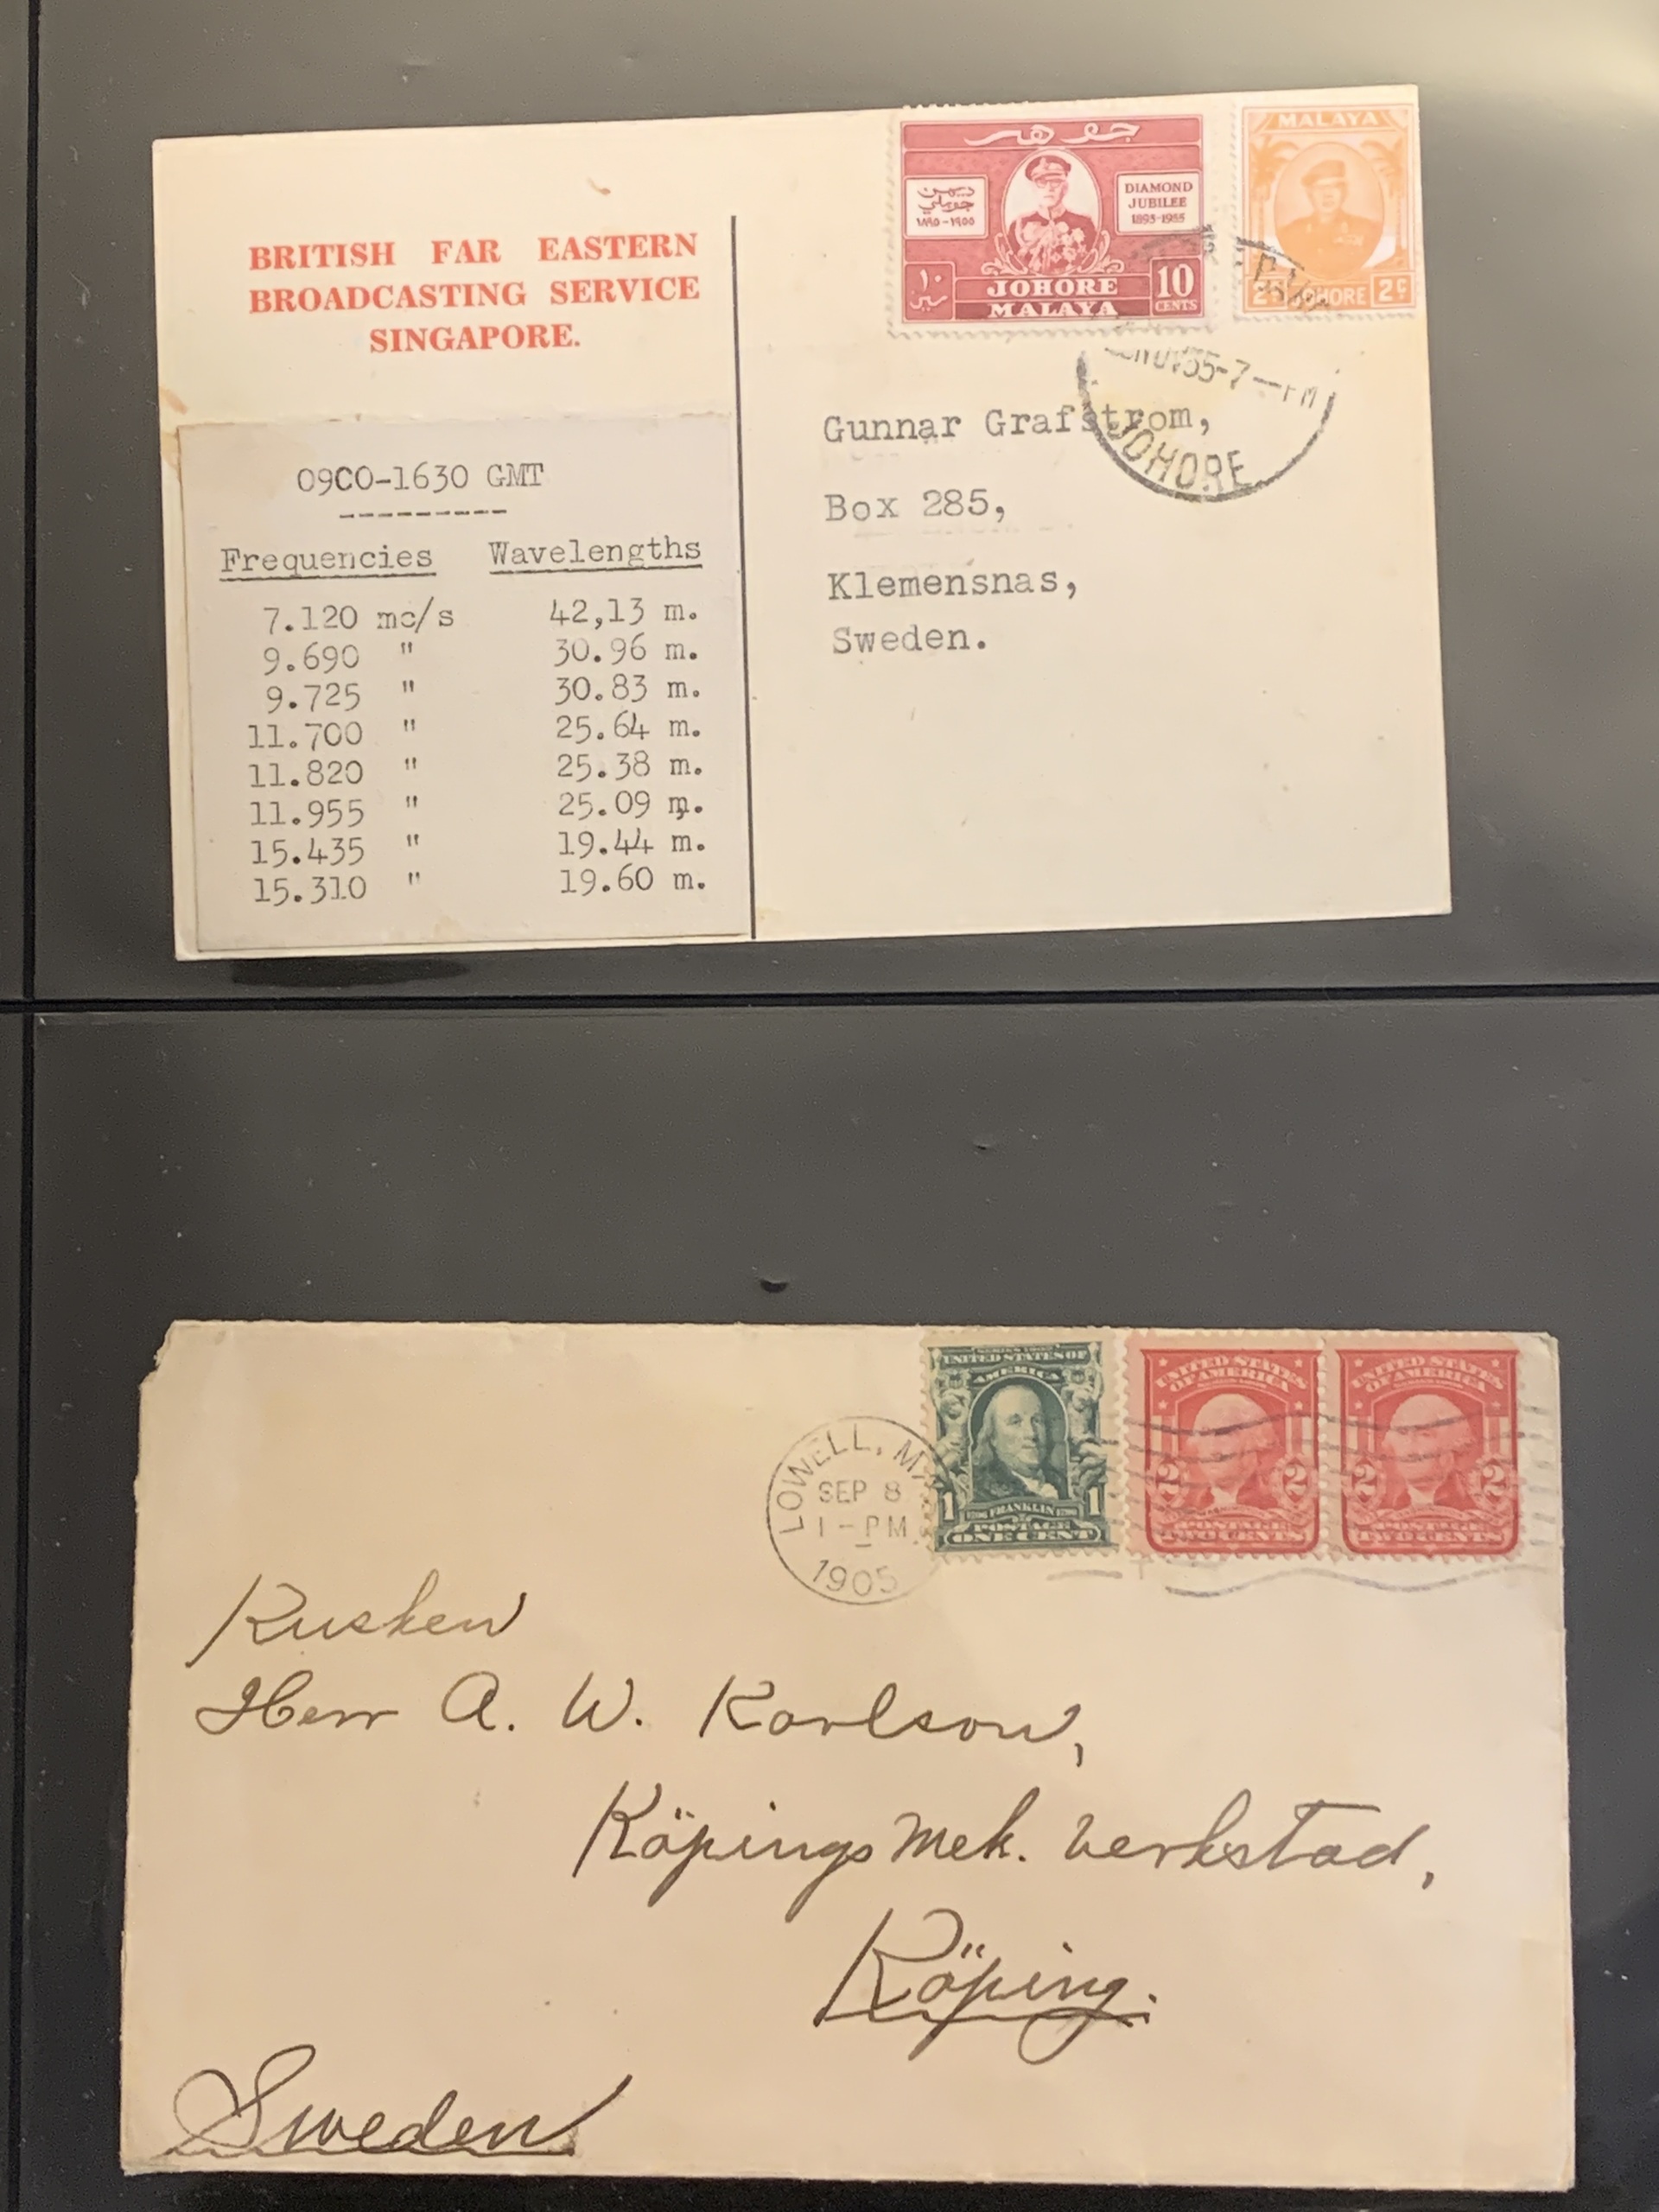 BRITISH FAR EASTERN
BROADCASTING SERVICE
SINGAPORE.
09CO-1630 GMT
---------
Frequencies Wavelengths
7.120 mc/s 42,13 m.
9.690 " 30.96 m.
9.725 " 30.83 m.
11.700 " 25.64 m.
11.820 " 25.38 m.
11.955 " 25.09 m.
15.435 " 19.44 m.
15.310 " 19.60 m.
جوهر
ديمن
جوبلي
١٨٩٥-١٩٥٥
DIAMOND
JUBILEE
1895-1955
١٠
سين
JOHORE
MALAYA
10
CENTS
MALAYA
JOHORE 2c
NOV55-7-PM
JOHORE
Gunnar Grafstrom,
Box 285,
Klemensnas,
Sweden.
LOWELL, MA
SEP 8
1-PM
1905
SERIES 1902
UNITED STATES OF
AMERICA
1 FRANKLIN 1
POSTAGE
ONE CENT
UNITED STATES
OF AMERICA
2 2
POSTAGE
TWO CENTS
UNITED STATES
OF AMERICA
2 2
POSTAGE
TWO CENTS
Kusken
Herr A. W. Karlson,
Köpings Mek. Verkstad,
Köping.
Sweden